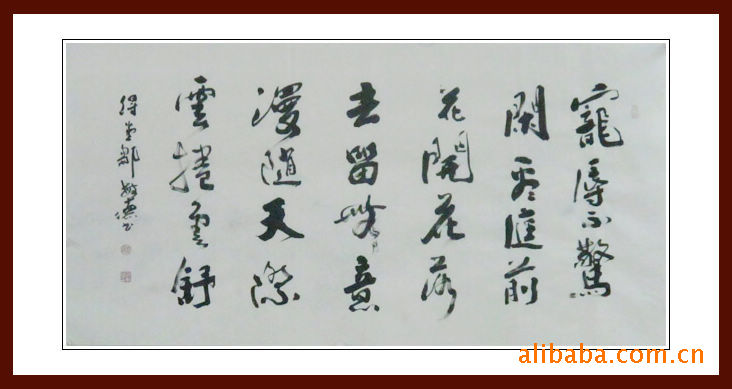 寵辱不驚
閑看庭前
花開花落
去留無意
漫隨天際
雲捲雲舒
alibaba.com.cn